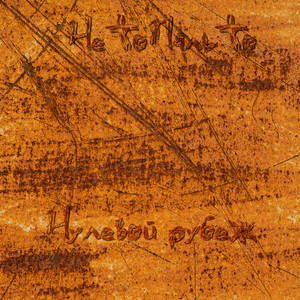 Не то Пень То
Нулевой рубеж